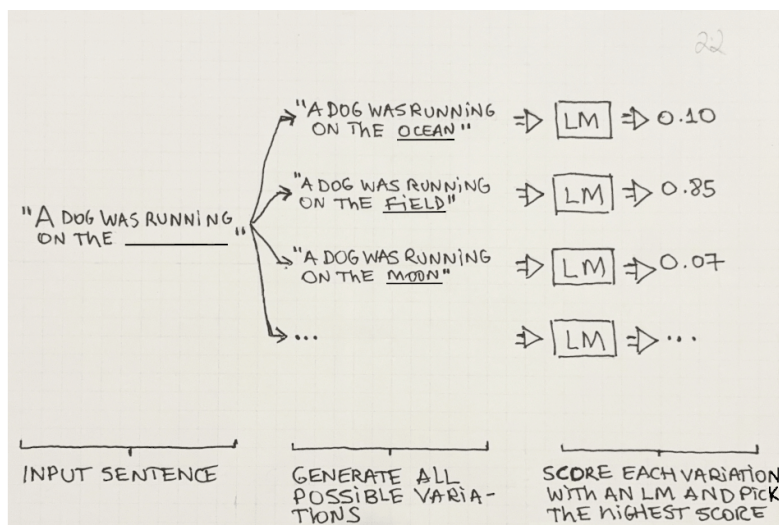 22
"A DOG WAS RUNNING
ON THE OCEAN"
⇒ LM ⇒ 0.10
"A DOG WAS RUNNING
ON THE FIELD"
⇒ LM ⇒ 0.85
"A DOG WAS RUNNING
ON THE ________"
"A DOG WAS RUNNING
ON THE MOON"
⇒ LM ⇒ 0.07
...
⇒ LM ⇒ ...
INPUT SENTENCE
GENERATE ALL
POSSIBLE VARIA-
TIONS
SCORE EACH VARIATION
WITH AN LM AND PICK
THE HIGHEST SCORE